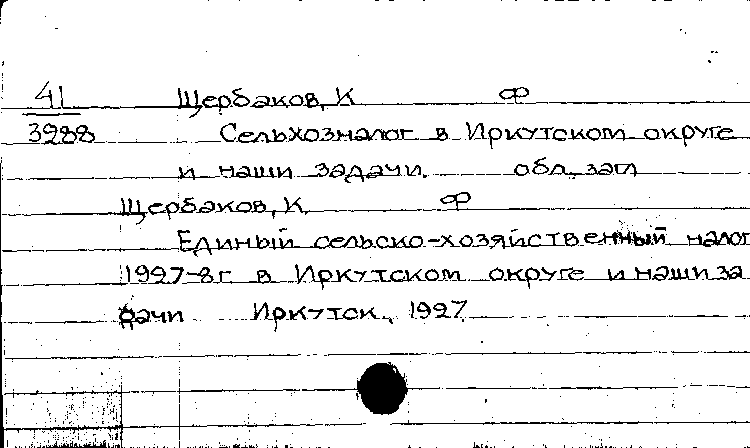 41 Щербаков, К ф
3988 Сельхозналог в Иркутском округе
и наши задачи. обл. загл
Щербаков, К. ф
Единый сельско-хозяйственный налог
1927-8 г. в Иркутском округе и наши за
дачи Иркутск, 1927.